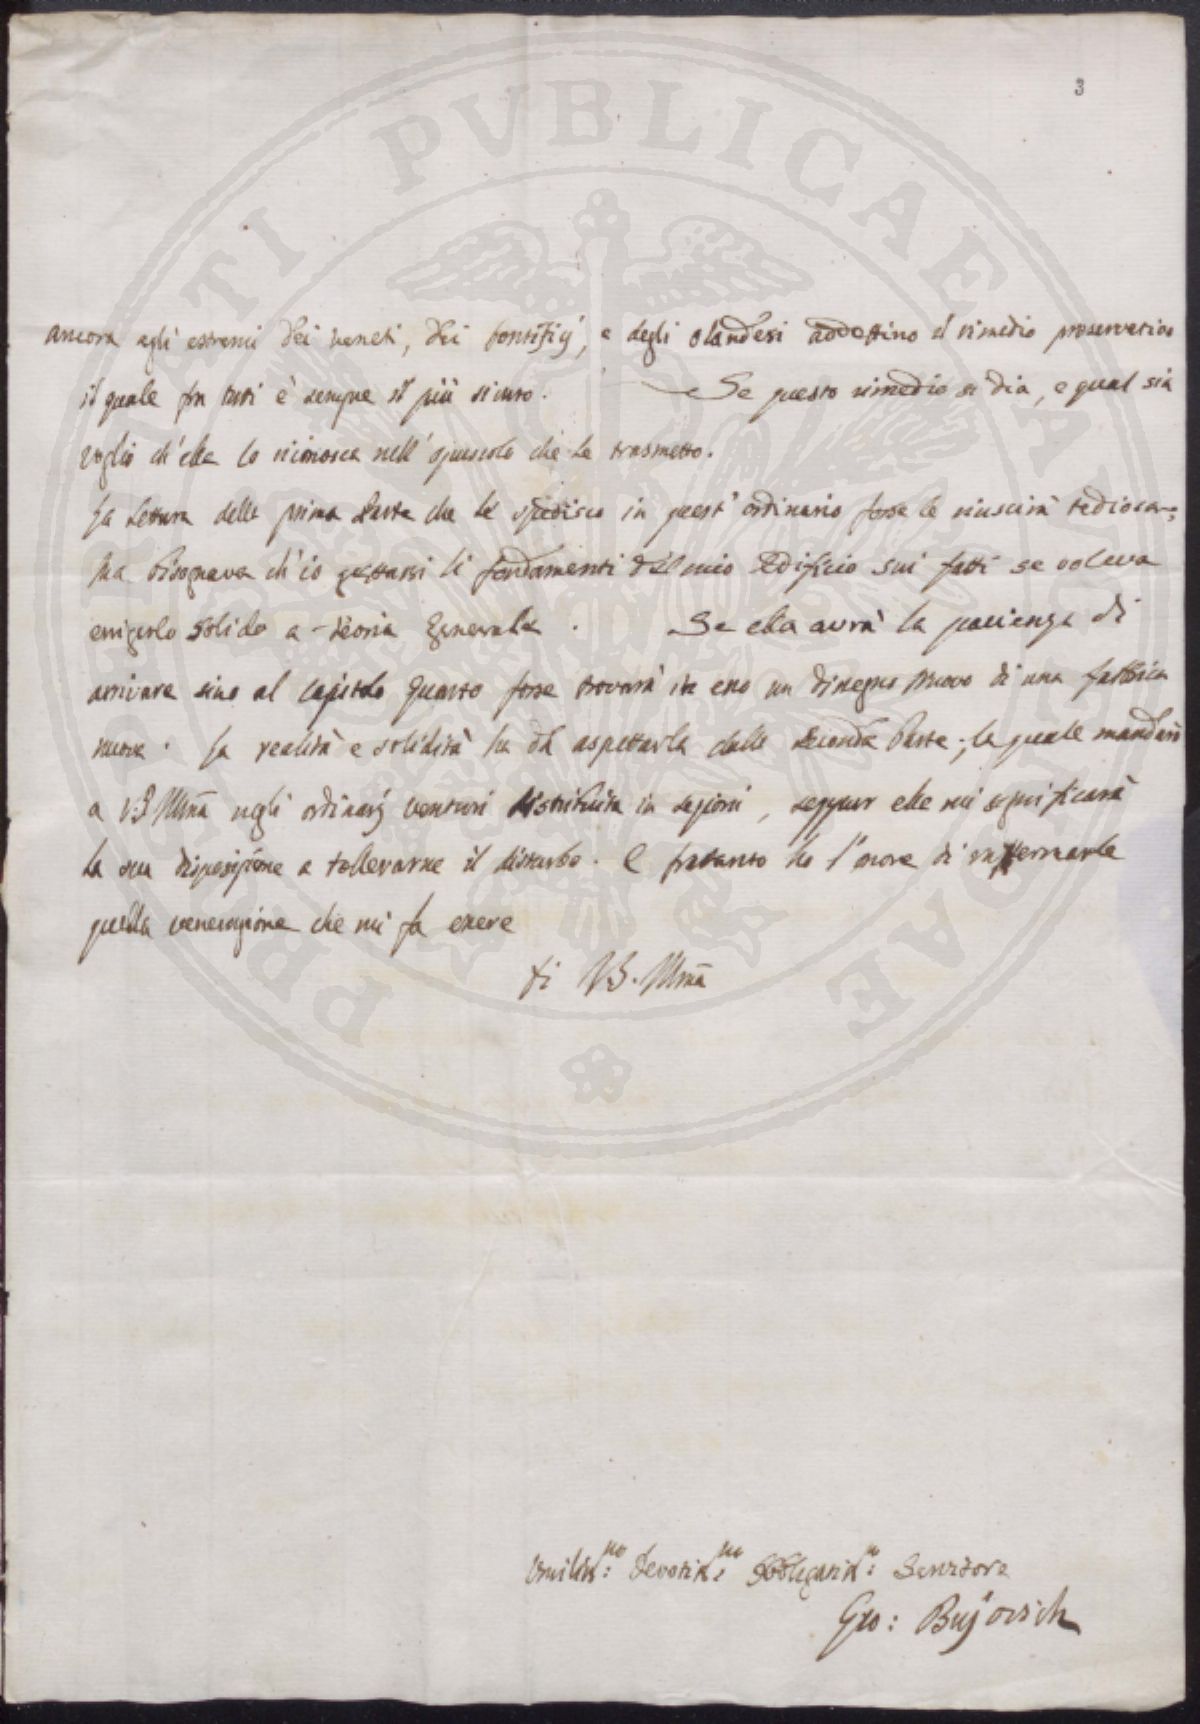 3
ancora agli estremi dei veneti, dei Pontificj, e degli olandesi addottino il rimedio preservativo
il quale fra tutti è sempre il più sicuro. Se questo rimedio si dia, e qual sia
voglio ch'ella lo riconosca nell'opuscolo che le trasmetto.
La lettura della prima Parte che le spedisco in quest'ordinario forse le riuscirà tediosa;
ma bisognava ch'io gettassi li fondamenti del mio Edificio sui fatti se voleva
erigerlo solido a Teoria Generale. Se ella avrà la pacienza di
arrivare sino al capitolo quarto forse trovarà in esso un disegno nuovo di una fabbrica
nuova. La realità e solidità ha da aspettarla dalla seconda Parte; la quale mandarò
a V.S. Illmã negli ordinarj venturi distribuita in sezioni, seppur ella mi significarà
la sua disposizione a tollerarne il disturbo. E fratanto ho l'onore di raffermarle
quella venerazione che mi fa essere
di V.S. Illmã
Umiliss:mo Devotiss:mo Obbligatiss:mo Servitore
Gio: Bujovich
PROSPERITATI PVBLICAE AVGENDAE